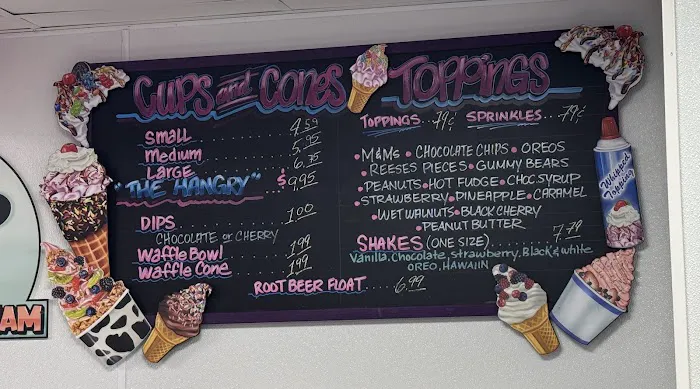 CUPS and CONES
SMALL 4.59
Medium 5.95
Large 6.75
"THE HANGRY" $9.95
DIPS 1.00
CHOCOLATE or CHERRY
Waffle Bowl 1.99
Waffle Cone 1.99
ROOT BEER FLOAT 6.99
TOPPINGS
TOPPINGS...79¢ SPRINKLES...79¢
• M&Ms • CHOCOLATE CHIPS • OREOS
REESES PIECES • GUMMY BEARS
• PEANUTS • HOT FUDGE • CHOC. SYRUP
STRAWBERRY • PINEAPPLE • CARAMEL
• WET WALNUTS • BLACK CHERRY
• PEANUT BUTTER
SHAKES (ONE SIZE) 7.79
Vanilla, Chocolate, strawberry, Black & white
OREO, HAWAIIN
Whipped
Topping
AM